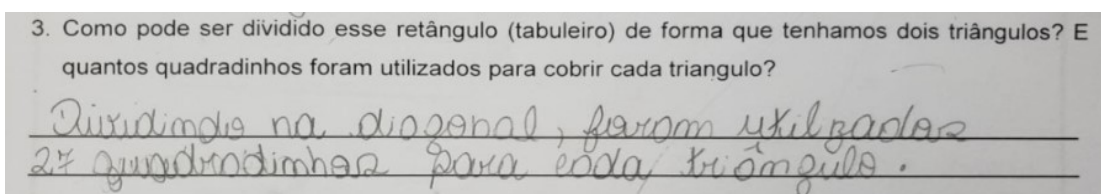 3. Como pode ser dividido esse retângulo (tabuleiro) de forma que tenhamos dois triângulos? E
quantos quadradinhos foram utilizados para cobrir cada triangulo?
Dividindo na diagonal, foram utilizados
27 quadradinhos para cada triângulo.